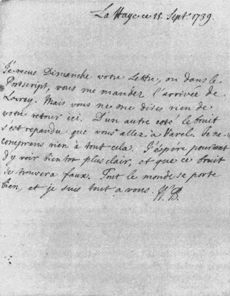 La Haye ce 15 Sept. 1739.
Je reçus Dimanche votre Lettre, où dans le
Postscript, vous me mandez l'arrivée de
Lovrey. Mais vous ne me dites rien de
votre retour ici. D'un autre coté le bruit
s'est repandu que vous allez à Varel. Je ne
comprens rien à tout cela. J'espère pourtant
d'y voir bientot plus clair, et que ce bruit
se trouvera faux. Tout le monde se porte
bien, et je suis tout a vous.